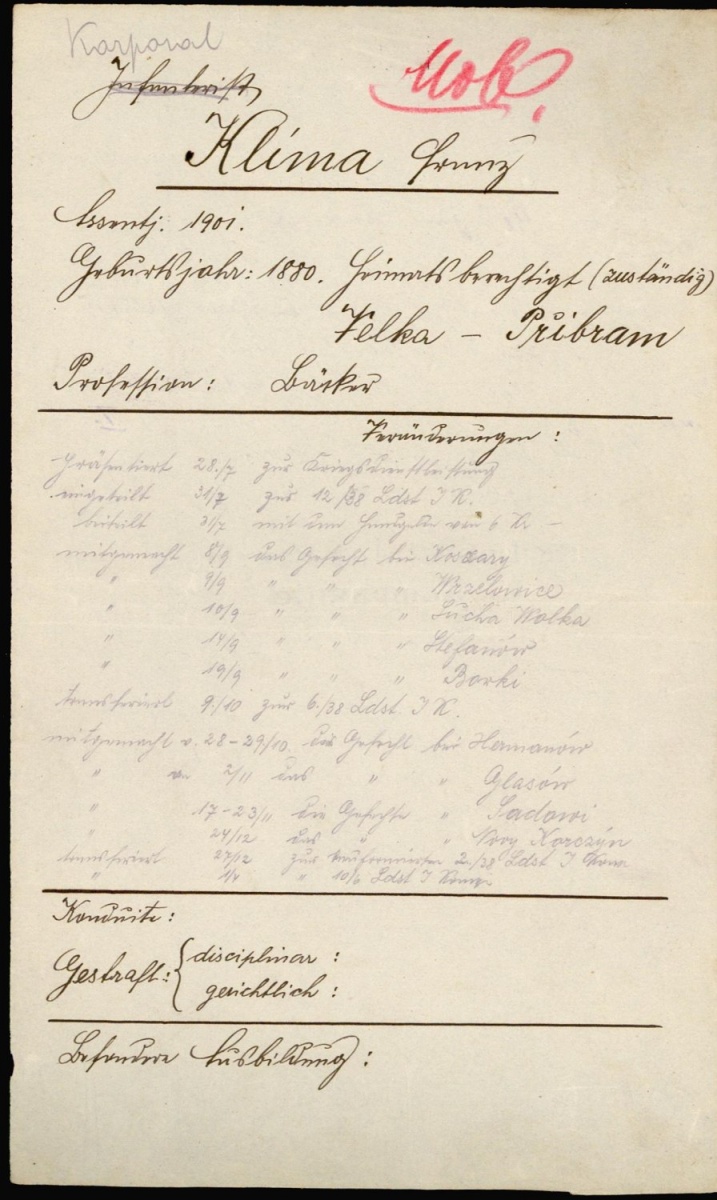 Korporal
Infanterist
Mob.
Klíma Franz
Assentj. 1901.
Geburtsjahr: 1880. Heimatsberechtigt (zuständig)
Velka - Příbram
Profession: Bäcker
Veränderungen:
Präsentiert 28./7 zur Kriegsdienstleistung
eingeteilt 31/7 zur 12/38 Ldst I R.
beteilt 31/7 mit dem Handgelde von 6 Kr -
mitgemacht 8/9 das Gefecht bei Koszary
" 9/9 " " " Wrzelowice
" 10/9 " " " Sucha Wolka
" 14/9 " " " Stefanów
" 19/9 " " " Borki
transferiert 9./10 zur 6./38 Ldst. I R.
mitgemacht v. 28-29/10. das Gefecht bei Hermanów
" am 2/11 das " " Glasów
" 17-23/11 die Gefechte " Sadowi
" 24/12 das " " Nowy Korczyn
transferiert 27/12 zur 2./38 Ldst I
" " 10/6 Ldst I
Konduite:
Gestraft: { disciplinar:
gerichtlich:
Besondere Ausbildung: